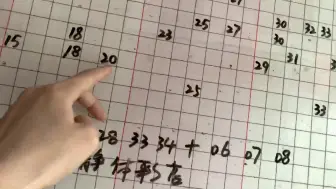 25 27 30 32 33
18 23 30
15 18 31
20 29
25
28 33 34 + 06 07 08